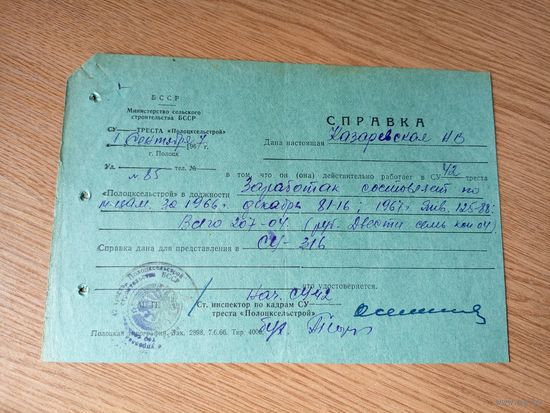 БССР
Министерство сельского
строительства БССР
СУ ТРЕСТА «Полоцксельстрой»
1 сентября 1967 г.
г. Полоцк
Ул. тел. №
№ 85
СПРАВКА
Дана настоящая Назаревская НВ
в том что он (она) действительно работает в СУ 42 треста
«Полоцксельстрой» в должности Заработак состовляет по
м-цам. за 1966 г. декабрь 81-16; 1967 г. Янв. 125-88:
Всего 207-04. (руб. Двести семь коп 04)
Справка дана для представления в СУ-316
что удостоверяется.
Нач. СУ-42
Ст. инспектор по кадрам СУ
треста «Полоцксельстрой»
бух.
Полоцкая типография, Зак. 2898, 7.6.66. Тир. 4000